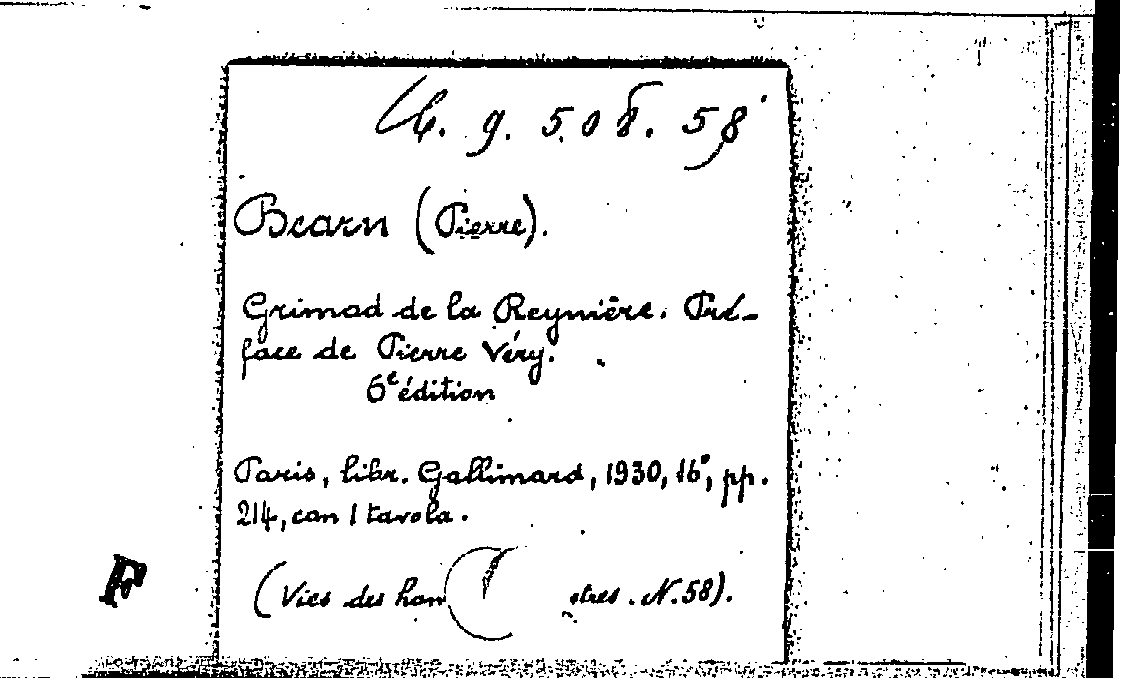 6. 9. 508. 58
Bearn (Pierre).
Grimod de la Reynière. Pré-
face de Pierre Véry.
6e édition
Paris, libr. Gallimard, 1930, 16°, pp.
214, con 1 tavola.
(Vies des hom stres. N. 58).
F